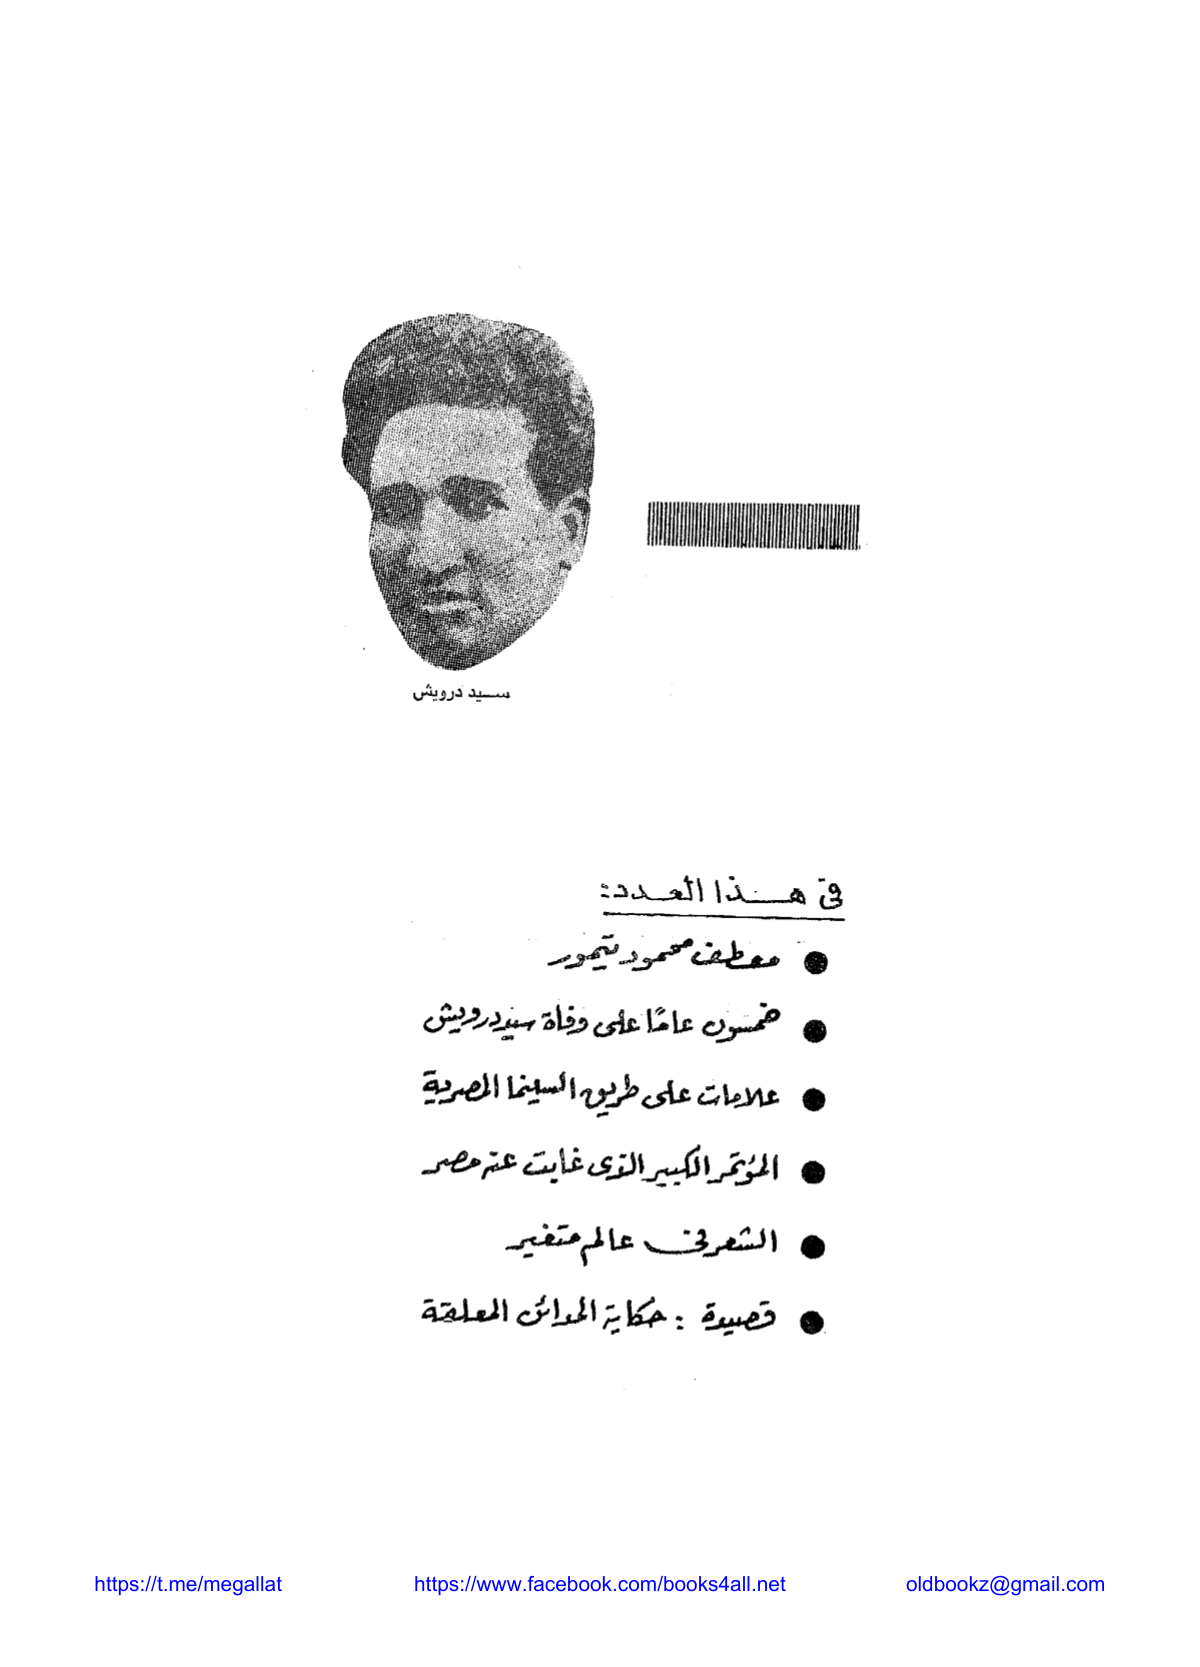 سيد درويش
في هذا العدد:
● معطف محمود تيمور
● خمسون عامًا على وفاة سيد درويش
● علامات على طريق السينما المصرية
● المؤتمر الكبير الذى غابت عنه مصر
● الشعر فى عالم متغير
● قصيدة : حكاية المدائن المعلقة
https://t.me/megallat
https://www.facebook.com/books4all.net
oldbookz@gmail.com